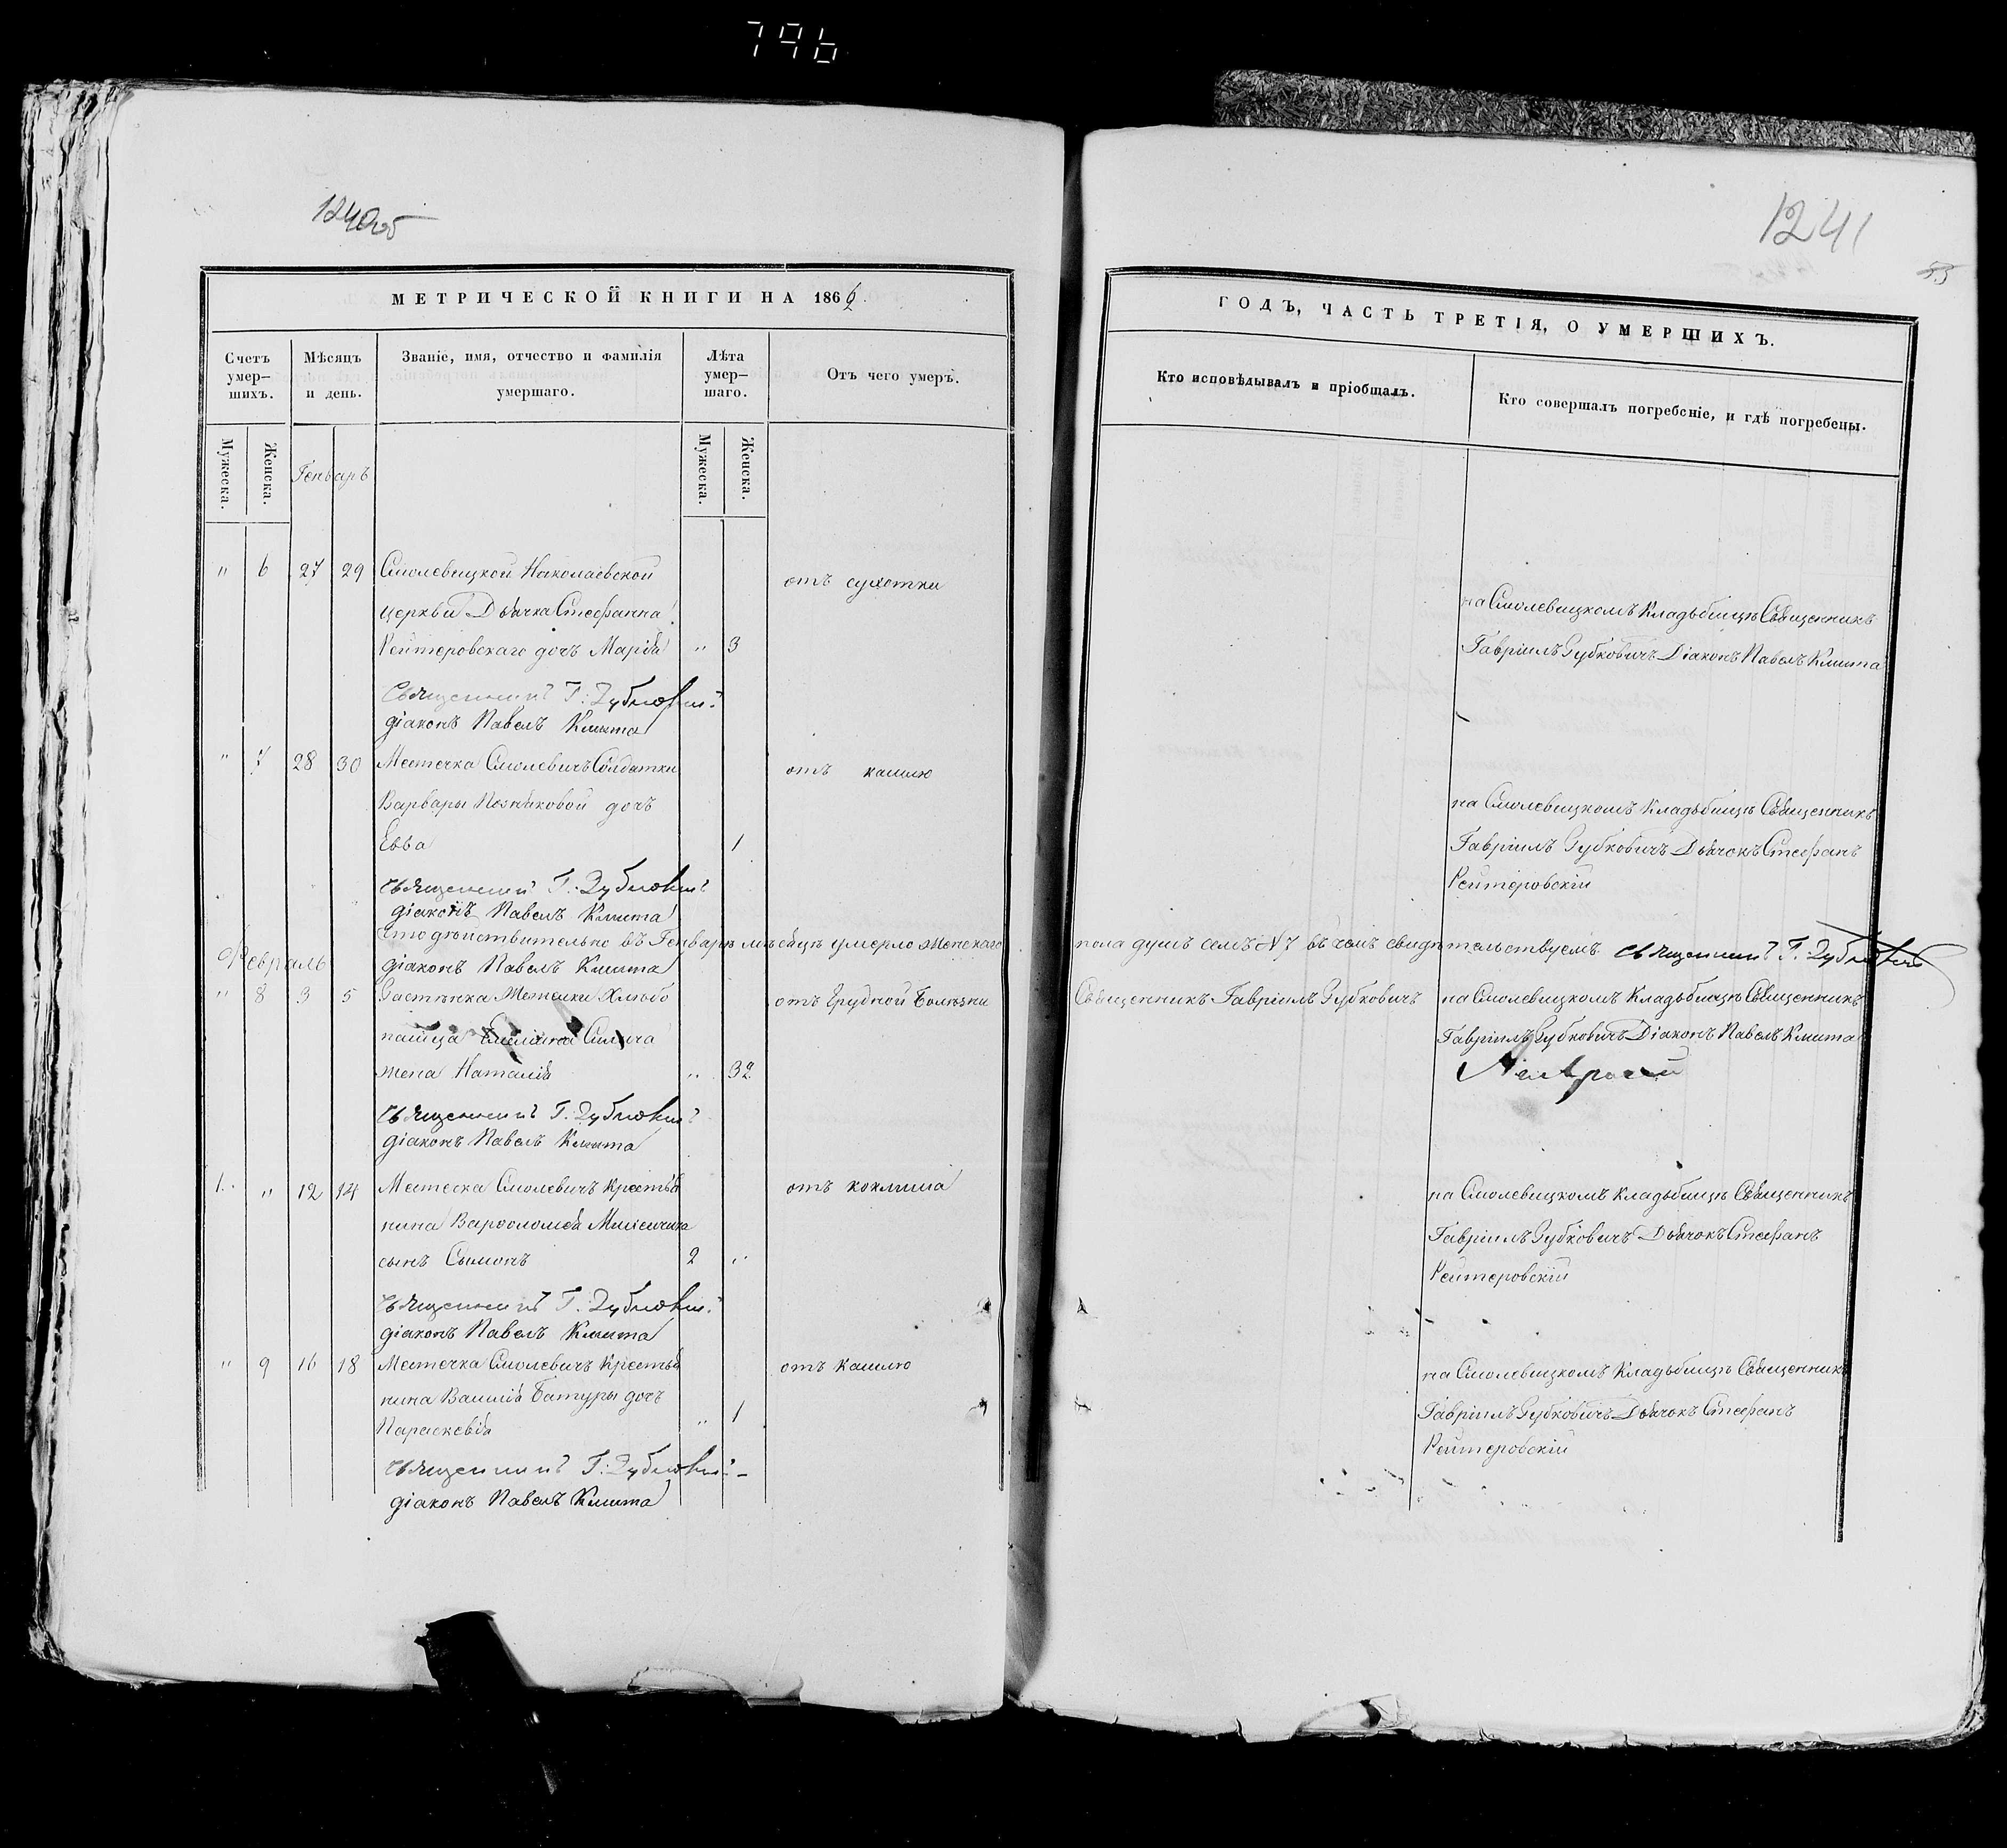 796
1240об
МЕТРИЧЕСКОЙ КНИГИ НА 186
Счетъ умер-шихъ.
Мѣсяцъ и день.
Званіе, имя, отчество и фамилія умершаго.
Лѣта умер-шаго.
Отъ чего умеръ.
Мужеска.
Женска.
Генварь
Мужеска.
Женска.
" 6 27 29 Смолевицкой Николаевской отъ сухотки
церкви Дьячка Стефана
Рейтеровскаго дочь Марія " 3
Священникъ Г. Зубковичъ
діаконъ Павелъ Кмита
" 7 28 30 Местечка Смолевичъ Солдатки отъ кашлю
Варвары дочь
Евва 1
Священникъ Г. Зубковичъ
діаконъ Павелъ Кмита
Что дѣйствительно въ Генварѣ мѣсяцѣ умерло женскаго
Февраль
діаконъ Павелъ Кмита
" 8 3 5 Застѣнка отъ Грудной Болѣзни
жена Наталія " 32
Священникъ Г. Зубковичъ
діаконъ Павелъ Кмита
1. " 12 14 Местечка Смолевичъ Крестья отъ коклюша
нина Варфоломея
сынъ Сымонъ 2 "
Священникъ Г. Зубковичъ
діаконъ Павелъ Кмита
" 9 16 18 Местечка Смолевичъ Крестья отъ кашлю
нина Василія Батуры дочь
Параскевія " 1
Священникъ Г. Зубковичъ
діаконъ Павелъ Кмита
1241
53
ГОДЪ, ЧАСТЬ ТРЕТІЯ, О УМЕРШИХЪ.
Кто исповѣдывалъ и пріобщалъ.
Кто совершалъ погребеніе, и гдѣ погребены.
на Смолевицкомъ Кладьбищѣ Священникъ
Гавріилъ Зубковичъ Діаконъ Павелъ Кмита
на Смолевицкомъ Кладьбищѣ Священникъ
Гавріилъ Зубковичъ Дьячокъ Стефанъ
Рейтеровскій
пола душъ семь N 7 въ чемъ свидѣтельствуемъ Священникъ Г. Зубковичъ
Священникъ Гавріилъ Зубковичъ на Смолевицкомъ Кладьбищѣ Священникъ
Гавріилъ Зубковичъ Діаконъ Павелъ Кмита
на Смолевицкомъ Кладьбищѣ Священникъ
Гавріилъ Зубковичъ Дьячокъ Стефанъ
Рейтеровскій
на Смолевицкомъ Кладьбищѣ Священникъ
Гавріилъ Зубковичъ Дьячокъ Стефанъ
Рейтеровскій